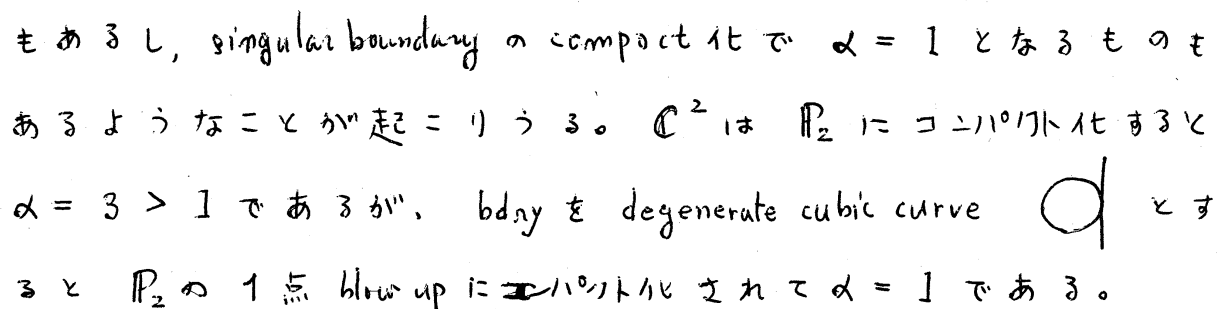 もあるし, singular boundary の compact 化で α = 1 となるものも
あるようなことが起こりうる。 ℂ² は ℙ₂ にコンパクト化すると
α = 3 > 1 であるが、 bdry を degenerate cubic curve とす
ると ℙ₂ の 1点 blow up にコンパクト化されて α = 1 である。